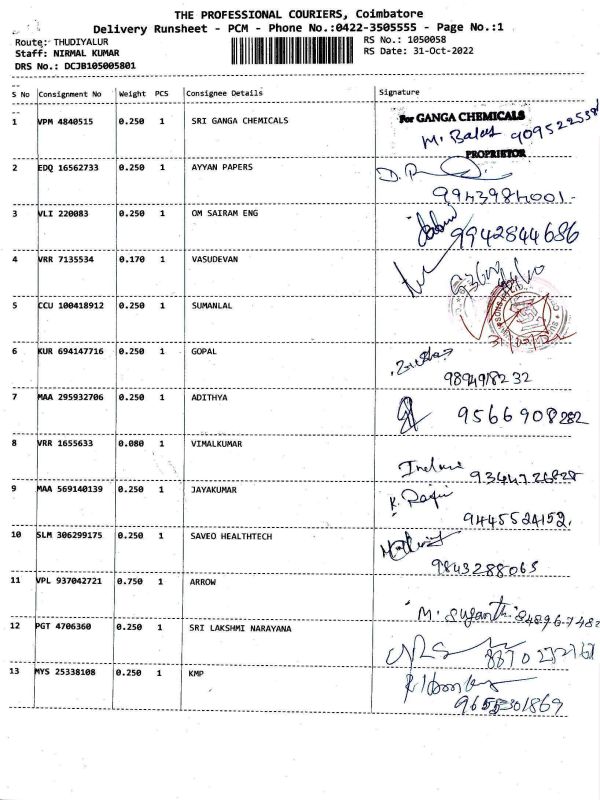 THE PROFESSIONAL COURIERS, Coimbatore
Delivery Runsheet - PCM - Phone No.:0422-3505555 - Page No.:1
Route: THUDIYALUR
RS No.: 1050058
Staff: NIRMAL KUMAR
RS Date: 31-Oct-2022
DRS No.: DCJB105005801
S No Consignment No Weight PCS Consignee Details Signature
1 VPM 4840515 0.250 1 SRI GANGA CHEMICALS For GANGA CHEMICALS
PROPRIETOR
2 EDQ 16562733 0.250 1 AYYAN PAPERS
9943984001
3 VLI 220083 0.250 1 OM SAIRAM ENG
9942844686
4 VRR 7135534 0.170 1 VASUDEVAN
5 CCU 100418912 0.250 1 SUMANLAL
6 KUR 694147716 0.250 1 GOPAL
9894918232
7 MAA 295932706 0.250 1 ADITHYA 9566908282
8 VRR 1655633 0.080 1 VIMALKUMAR
9 MAA 569140139 0.250 1 JAYAKUMAR
9445524152.
10 SLM 306299175 0.250 1 SAVEO HEALTHTECH
9843288063
11 VPL 937042721 0.750 1 ARROW
12 PGT 4706360 0.250 1 SRI LAKSHMI NARAYANA
13 MYS 25338108 0.250 1 KMP
9655301869